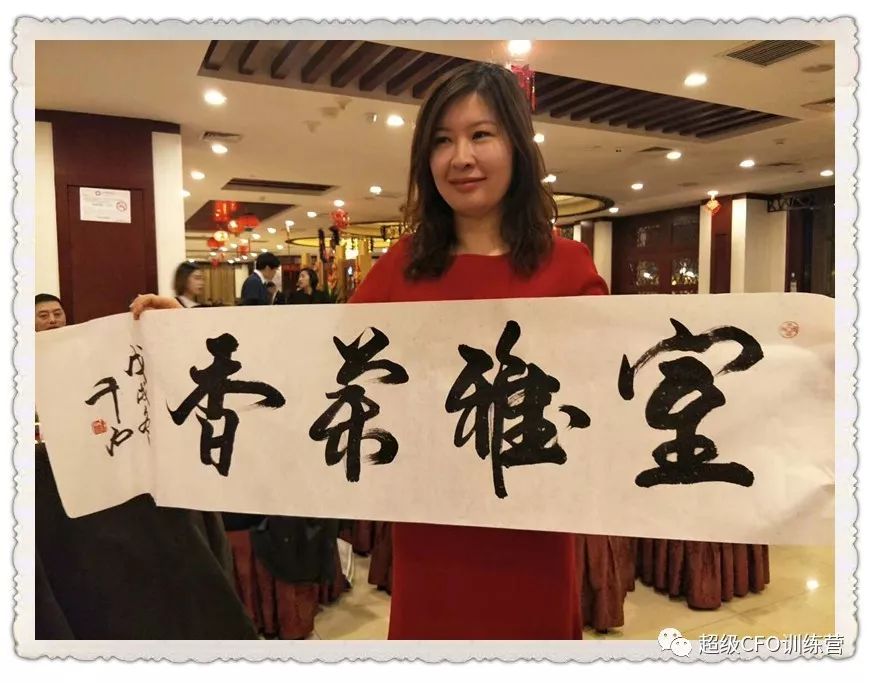 室雅茶香
戊戌年
超级CFO训练营